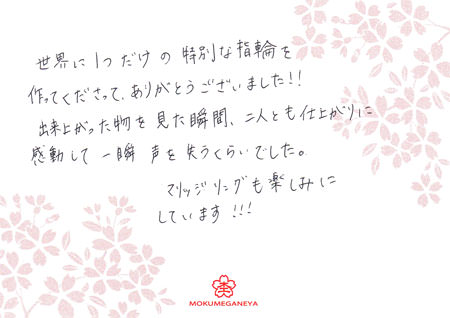 世界に1つだけの特別な指輪を
作ってくださって、ありがとうございました!!
出来上がった物を見た瞬間、二人とも仕上がりに
感動して一瞬声を失うくらいでした。
マリッジリングも楽しみに
しています!!!
MOKUMEGANEYA